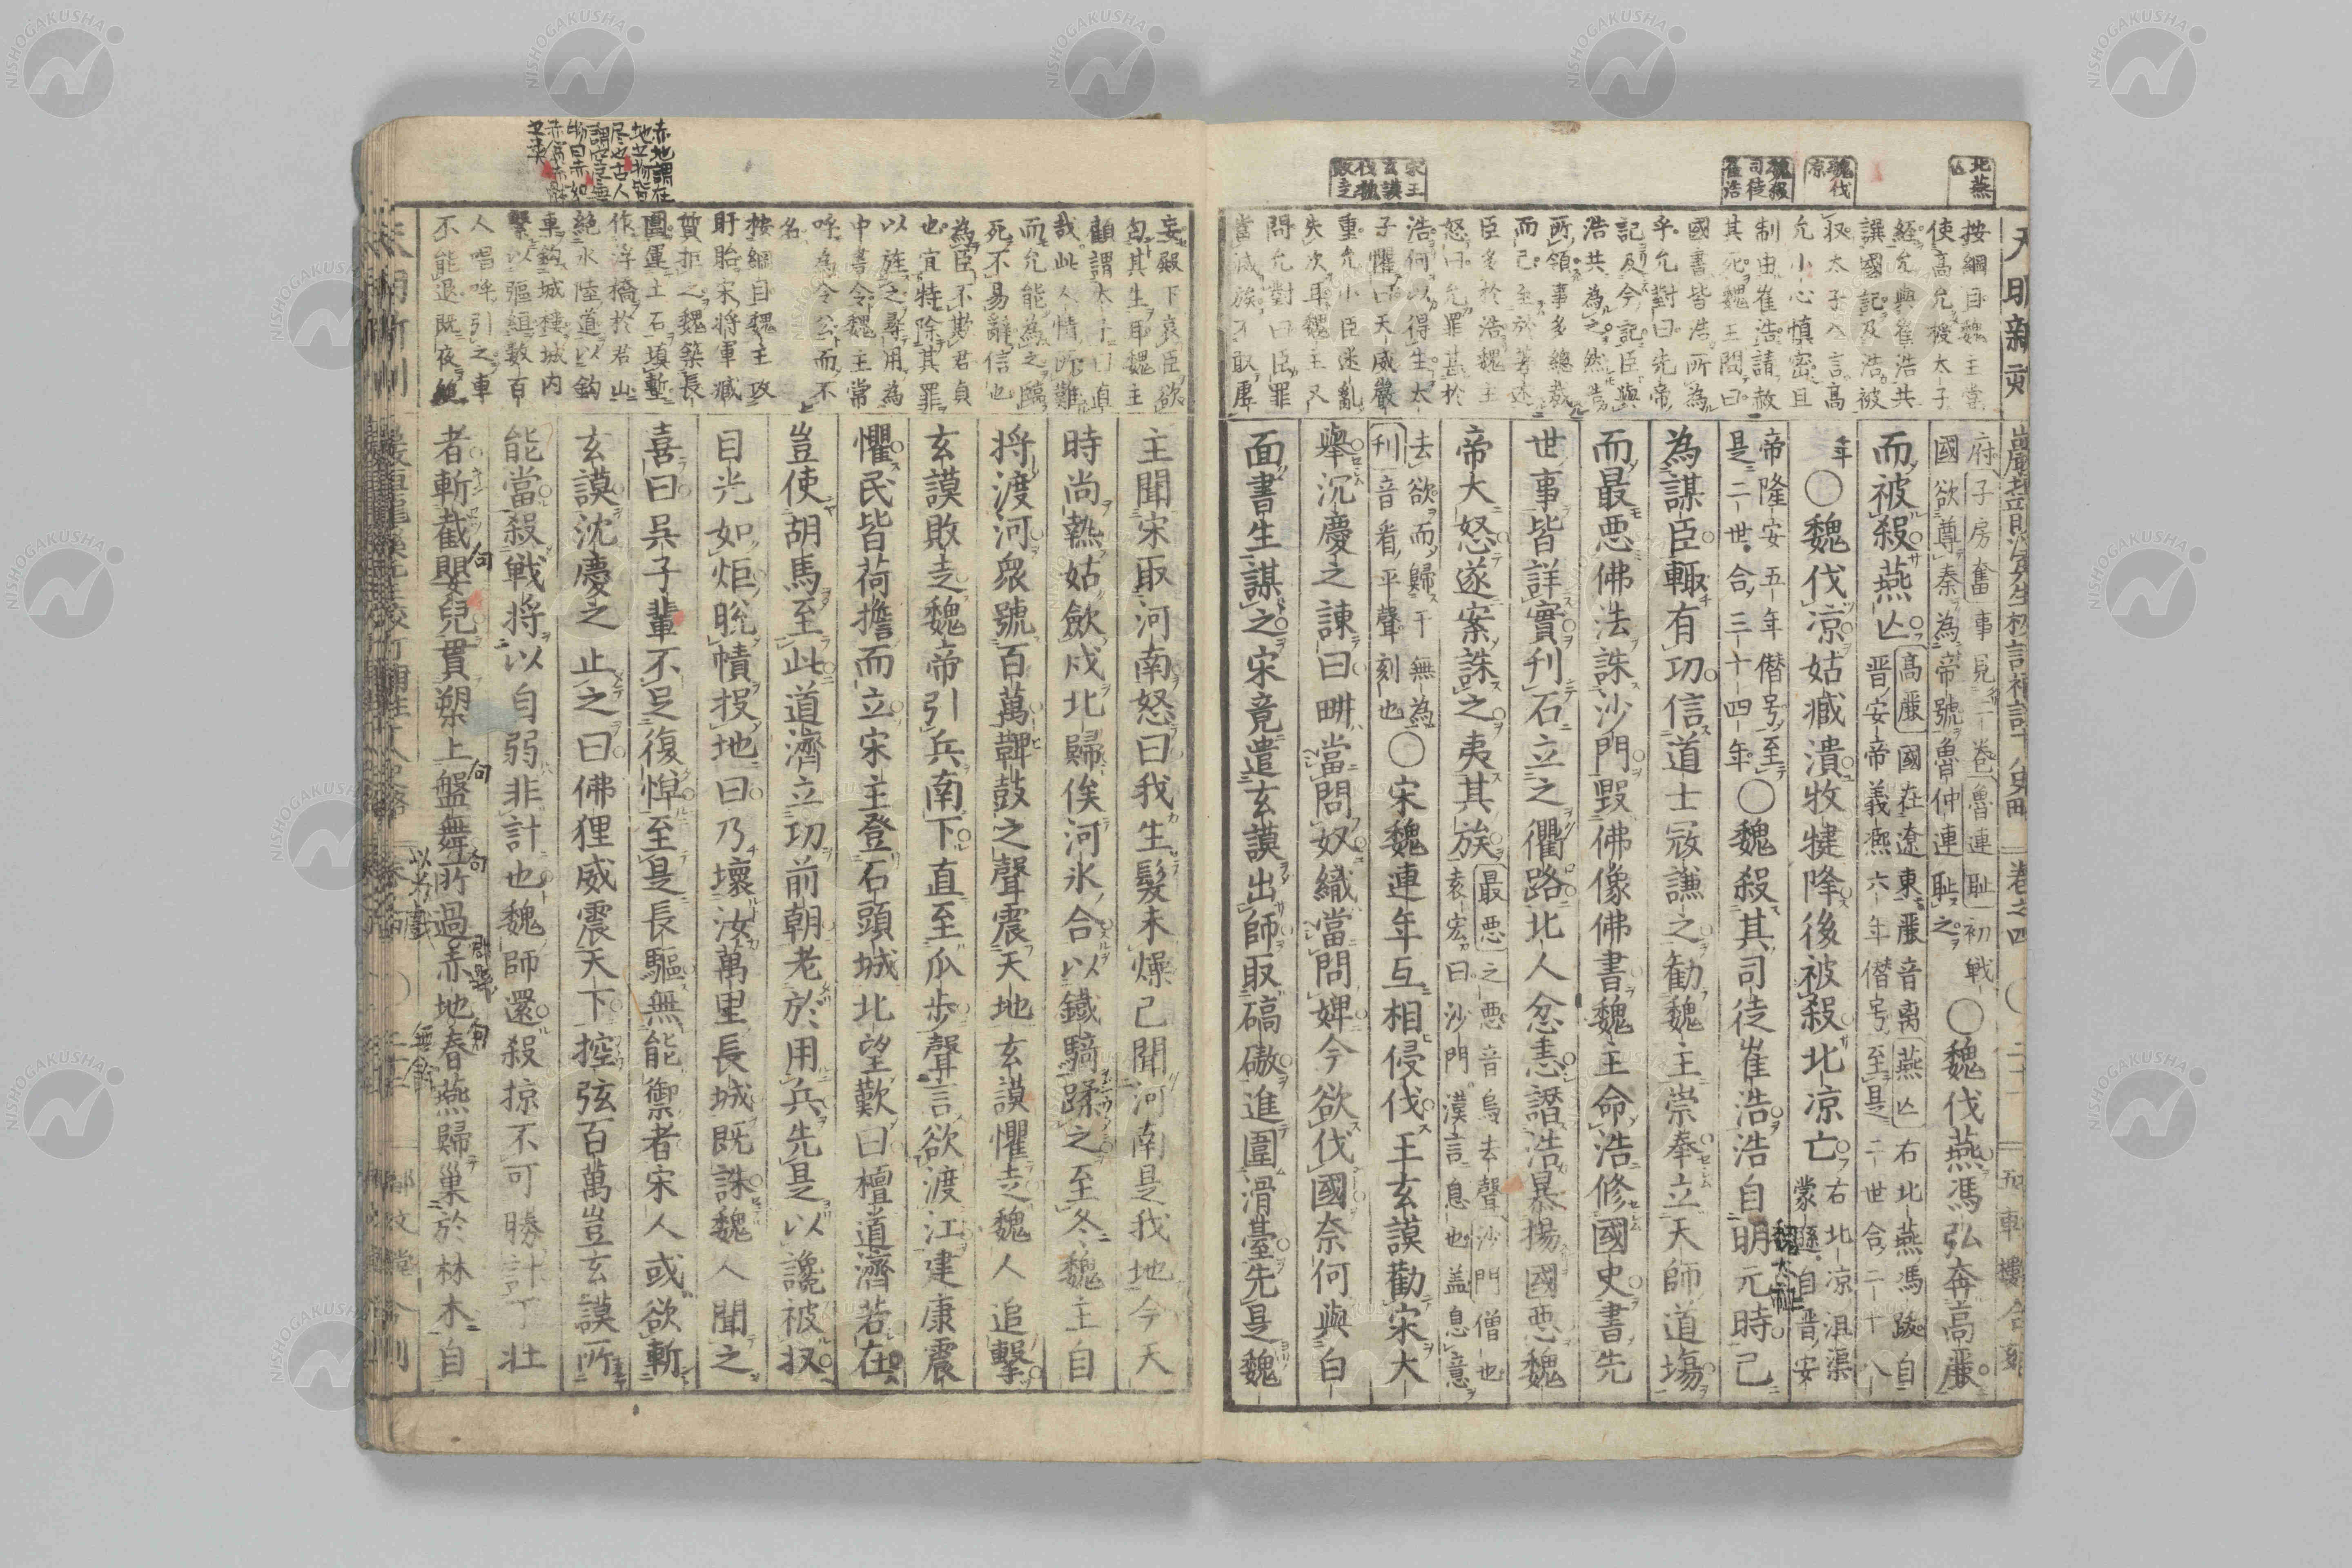 北燕
亡
魏伐
凉
魏殺
司徒
崔浩
宋王
玄謨
伐魏
敗走
按綱目魏主嘗
使高允授太子
經允與崔浩共
譔國記及浩被
收太子入言高
允小心慎密且
制由崔浩請赦
其死魏王問曰
國書皆浩所為
乎允對曰先帝
記及今記臣與
浩共為之然浩
所領事多總裁
而已至於著述
臣多於浩魏主
怒曰允罪甚於
浩何以得生太
子懼曰天威嚴
重允小臣迷亂
失次耳魏主又
問允對曰臣罪
當滅族不敢虛
府子房奮事見一卷魯連耻初戰
國欲尊秦為帝號魯仲連耻之
○魏伐燕馮弘奔高麗
而被殺燕亡
高麗國在遼東麗音离燕亡右北燕馮跋自
晋安帝義熙六年僣号至是二世合二十八
年
○魏伐凉姑臧潰牧犍降後被殺北凉亡
右北凉沮渠
蒙遜自晋安
帝隆安五年僣号至
是二世合三十四年
○魏殺其司徒崔浩浩自明元時已
為謀臣輙有功信道士冦謙之勸魏主崇奉立天師道場
而最悪佛法誅沙門毀佛像佛書魏主命浩修國史書先
世事皆詳實刋石立之衢路北人忿恚譖浩暴揚國悪魏
帝大怒遂案誅之夷其族
最悪之悪音烏去聲沙門僧也
袁宏曰沙門漢言息也盖息意
去欲而歸于無為
刋音看平聲刻也
○宋魏連年互相侵伐王玄謨勸宋大
舉沉慶之諌曰畊當問奴織當問婢今欲伐國奈何與白
面書生謀之宋竟遣玄謨出師取碻磝進圍滑臺先是魏
妄殿下哀臣欲
匄其生耳魏主
顧謂太子曰直
哉此人情所難
而允能為之臨
死不易辭信也
為臣不欺君貞
也宜特除其罪
以旌之尋用為
中書令魏主常
呼為令公而不
名
按綱目魏主攻
盱眙宋將軍臧
質拒之魏築長
圍運土石填塹
作浮橋於君山
絕水陸道以鈎
車鈎城樓城内
繫以彄絙数百
人唱呼引之車
不能退既夜縋
主聞宋取河南怒曰我生髮未燥已聞河南是我地今天
時尚熱姑歛戍北歸俟河氷合以鐵騎蹂之至冬魏主自
将渡河衆號百萬鞞鼓之聲震天地玄謨懼走魏人追擊
玄謨敗走魏帝引兵南下直至瓜歩聲言欲渡江建康震
懼民皆荷擔而立宋主登石頭城北望歎曰檀道濟若在
豈使胡馬至此道濟立功前朝老於用兵先是以讒被収
目光如炬脫幘投地曰乃壞汝萬里長城既誅魏人聞之
喜曰呉子輩不足復憚至是長驅無能禦者宋人或欲斬
玄謨沈慶之止之曰佛狸威震天下控弦百萬豈玄謨所
能當殺戰将以自弱非計也魏師還殺掠不可勝計丁壮
者斬截嬰兒貫槊上盤舞所過赤地春燕歸巢於林木自